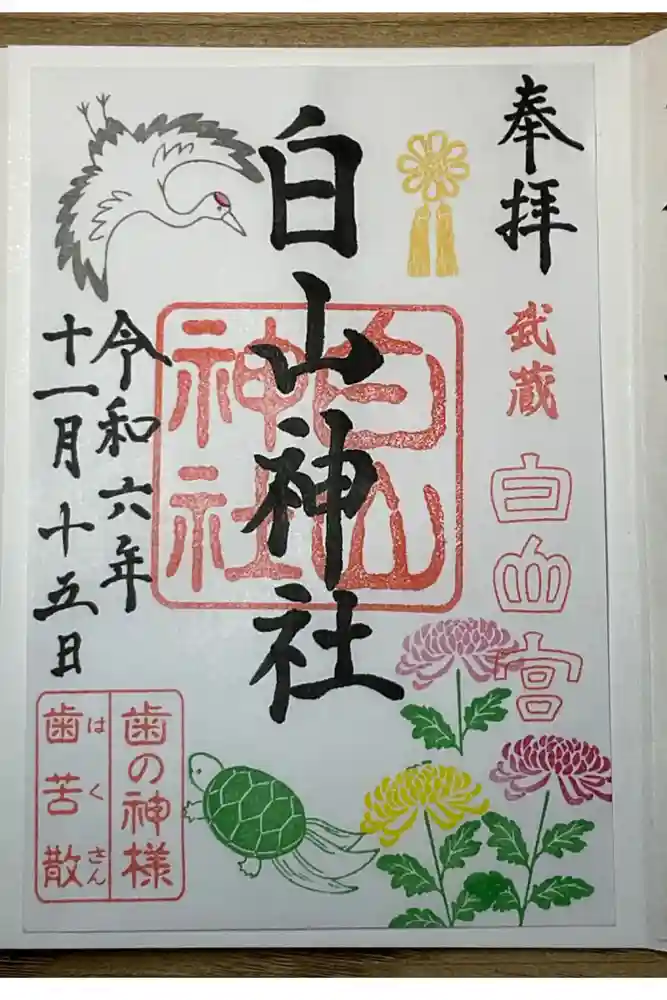 奉拝
武蔵
白山宮
白山神社
白山
神社
令和六年
十一月十五日
歯の神様
歯苦散
はくさん